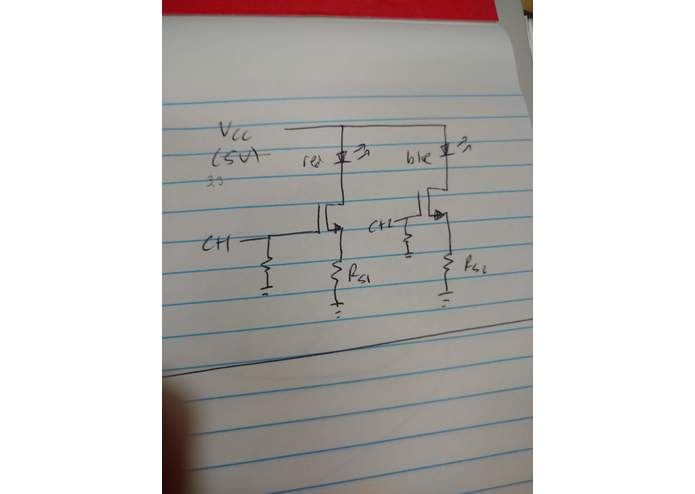 Vcc
(5V)
red
blue
CH1
CH2
RS1
RS2